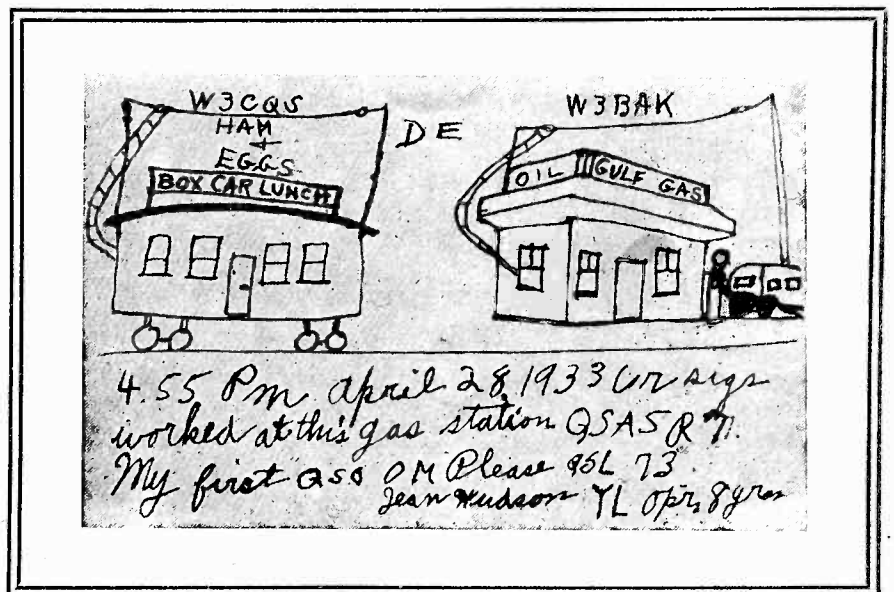 W3CQS
HAM
+
EGGS
BOX CAR LUNCH
DE
W3BAK
OIL GULF GAS
4.55 Pm april 28, 1933 Ur sigs
worked at this gas station QSA5 R 7.
My first QSO OM Please QSL 73.
Jean Hudson YL opr, 8 yrs